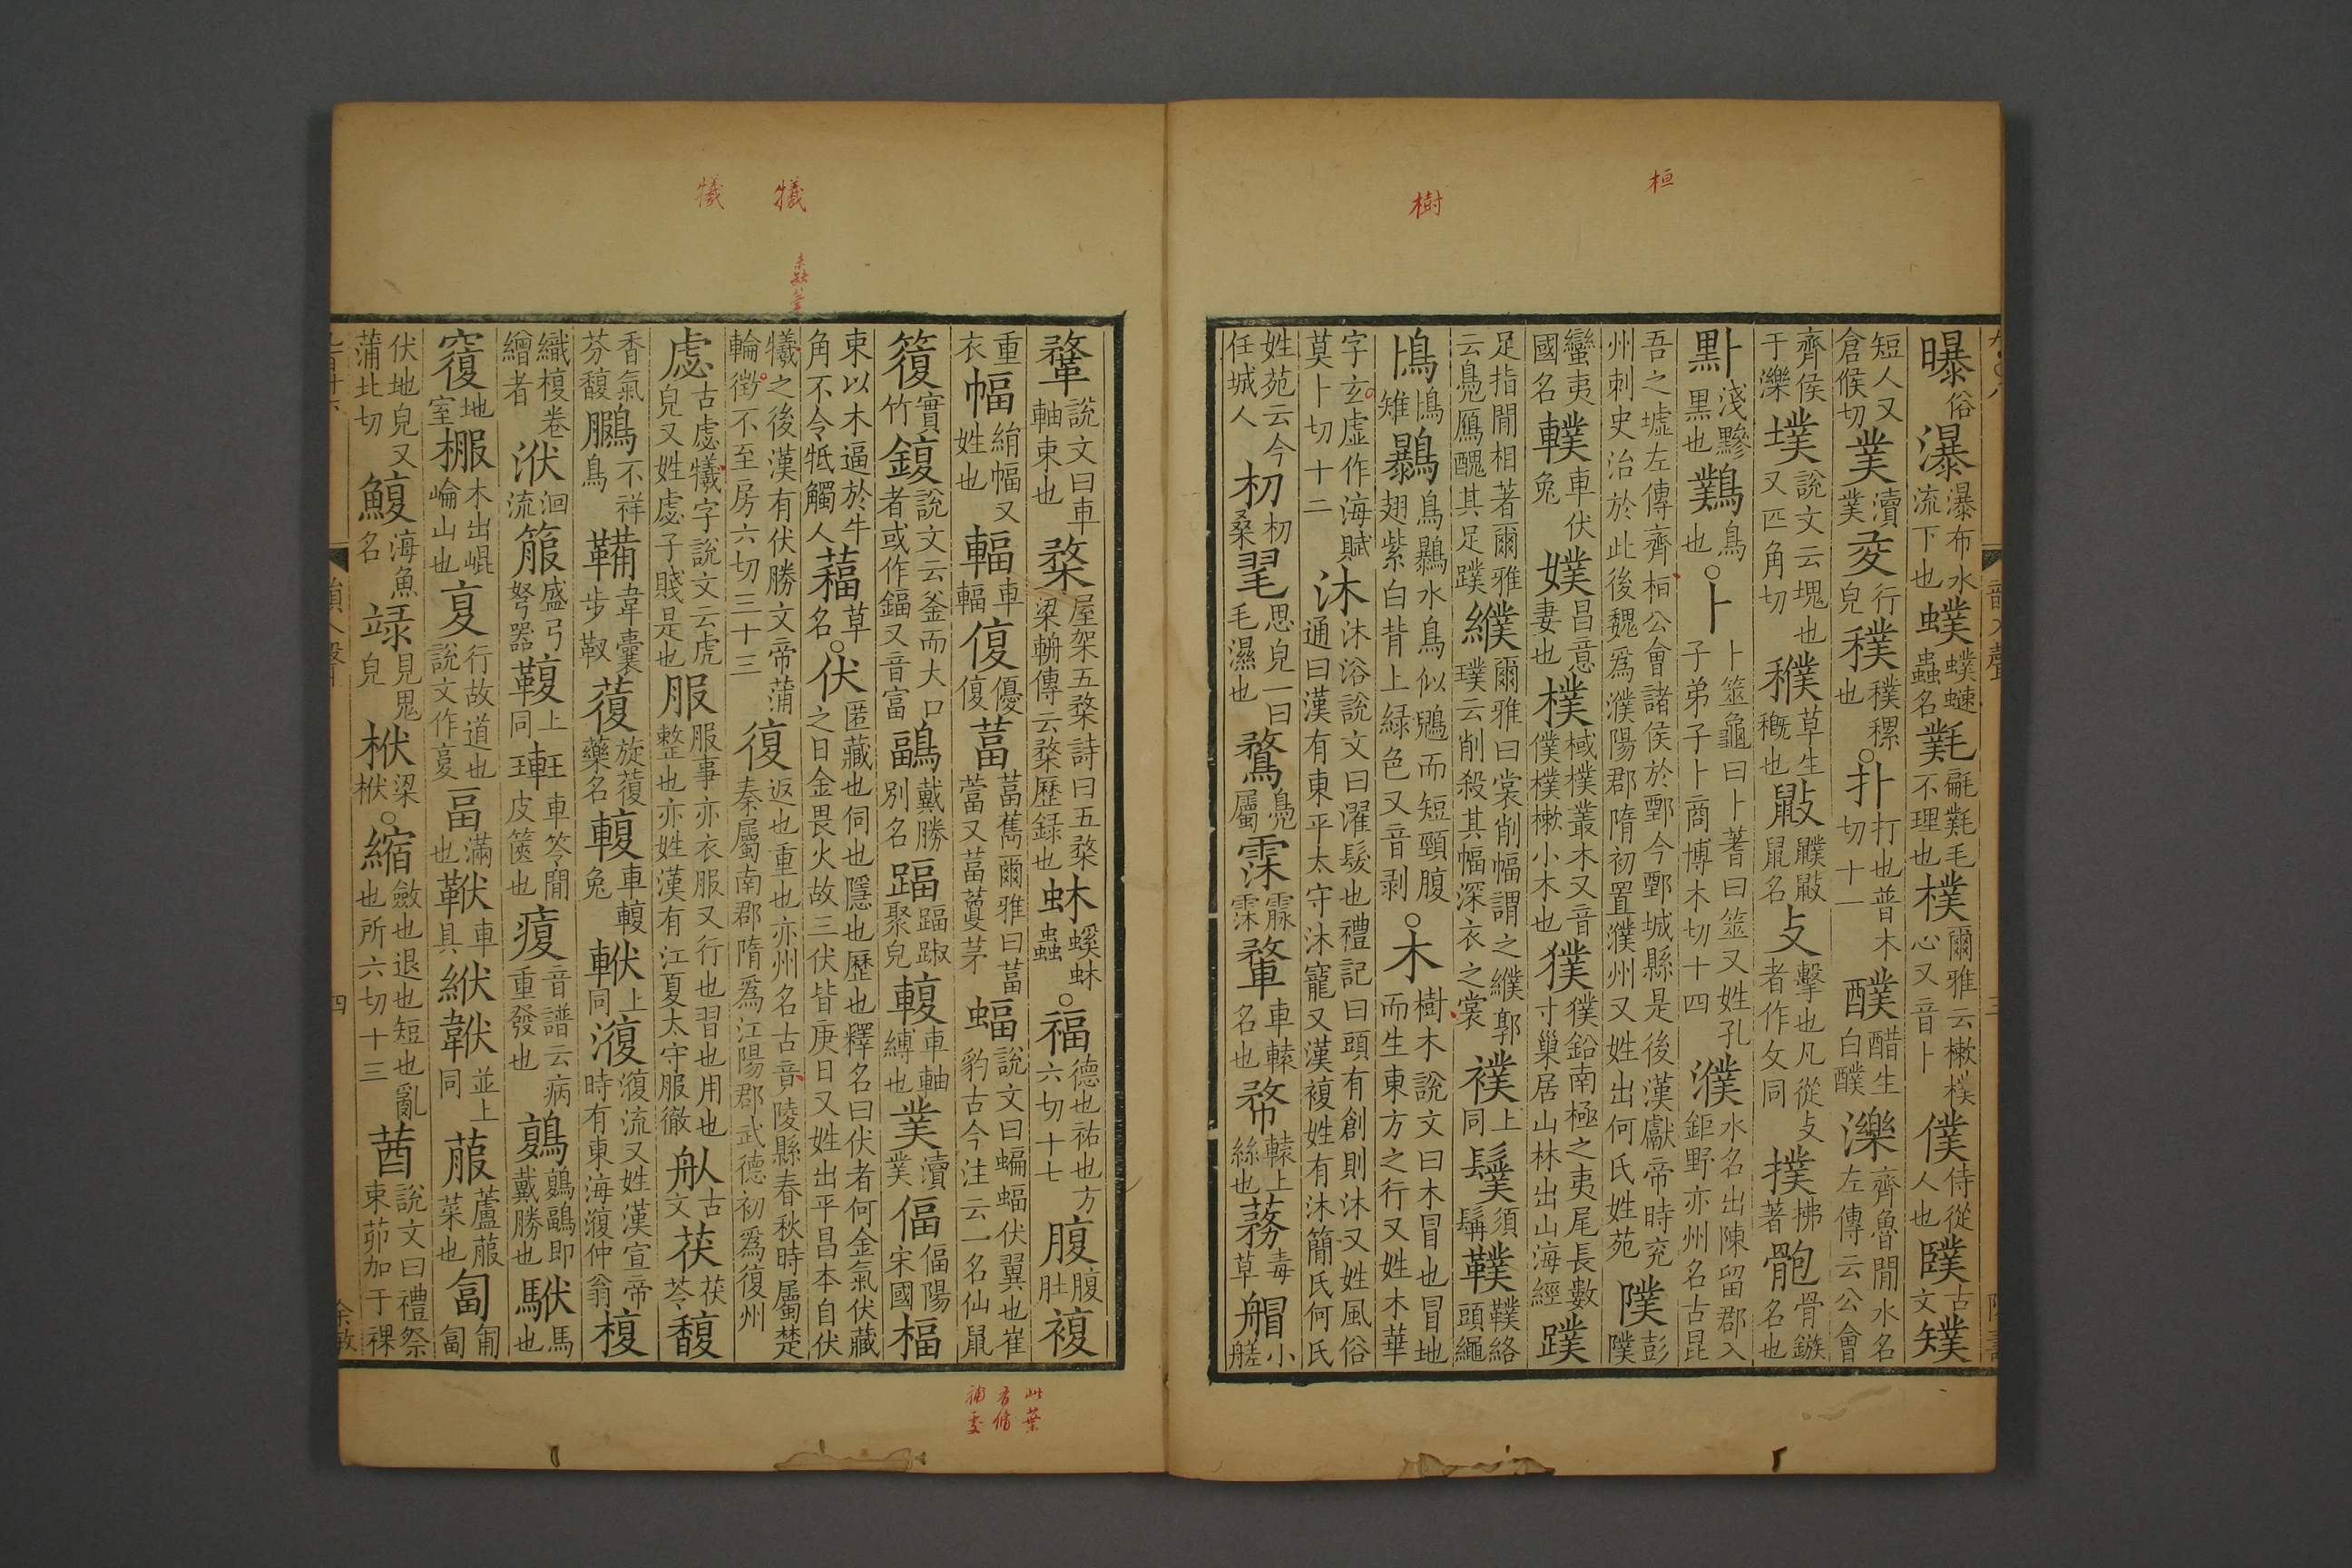 桓
樹
曝俗瀑瀑布水流下也蟔蟔螏蟲名㲫㲝㲫毛不理也樸爾雅云樕樸心又音卜僕侍從人也𦣋古文㒒
短人又倉候切菐瀆菐㚆行皃穙穙穋也○扑打也普木切十一醭醋生白醭濼齊魯間水名左傳云公會
齊侯于濼墣說文云塊也又匹角切䴆草生穊也䶈䶉䶈鼠名攴擊也凡從攴者作攵同撲拂著骲骨鏃名也
㸃淺黲黑也鸔鳥也○卜卜筮龜曰卜蓍曰筮又姓孔子弟子卜商博木切十四濮水名出陳留郡入鉅野亦州名古昆
吾之墟左傳齊桓公會諸侯於鄄今鄄城縣是後漢獻帝時兖州刺史治於此後魏爲濮陽郡隋初置濮州又姓出何氏姓苑㺪彭㺪
蠻夷國名轐車伏兔嬳昌意妻也樸棫樸叢木又音僕樸樕小木也獛獛鉛南極之夷尾長數寸巢居山林出山海經蹼
足指間相著爾雅云鳧鴈醜其足蹼纀爾雅曰裳削幅謂之纀郭璞云削殺其幅深衣之裳襆上同鬃須髇鞻鞻絡頭繩
鳪鳪雉鸔鳥鸔水鳥似鶂而短頸腹翅紫白背上綠色又音剥○木樹木說文曰木冒也冒地而生東方之行又姓木華
字玄虛作海賦莫卜切十二沐沐浴說文曰濯髮也禮記曰頭有創則沐又姓風俗通曰漢有東平太守沐寵又漢複姓有沐簡氏何氏
姓苑云今任城人朷朷桑毣思皃一曰毛濕也鶩鳧屬霂霢霂鞪車轅名也楘轅上絲也蓩毒草艒小艖
鞪說文曰車軸束也楘屋架五楘詩曰五楘梁輈傳云楘歷録也蚞螇蚞蟲○福德也祐也方六切十七腹腹肚複
重衣幅絹幅又姓也輻車輻㠅優㠅葍葍藑爾雅曰葍藑又葍蔓茅蝠說文曰蝙蝠伏翼也崔豹古今注云一名仙鼠
䈏竹實鍑說文云釜而大口者或作鍢又音富鶝戴勝別名踾踾踧聚皃輹車軸縛也菐瀆菐偪偪陽宋國楅
束以木逼於牛角不令牴觸人䕎草名○伏匿藏也伺也隱也歷也釋名曰伏者何金氣伏藏之日金畏火故三伏皆庚日又姓出平昌本自伏
犧之後漢有伏勝文帝蒲輪徵不至房六切三十三復返也重也亦州名古音陵縣春秋時屬楚秦屬南郡隋爲江陽郡武德初爲復州
虙古虙犧字說文云虎皃又姓虙子賤是也服服事亦衣服又行也習也用也整也亦姓漢有江夏太守服徹𦨕古文茯茯苓馥
香氣芬馥鵩不祥鳥鞴韋囊步靫蕧旋蕧藥名輹車輹兔䡟上同澓澓流又姓漢宣帝時有東海澓仲翁榎
織榎卷繒者洑洄流箙盛弓弩器鞍上同䡗車笭間皮篋也㾔音譜云病重發也鶝鶝鶝即戴勝也䭸馬也
𥨍地室棴木出崐崘山也夏行故道也說文作夏畐滿也靴車具紱韍並上同菔蘆菔菜也匐匍匐
伏地皃又蒲北切鰒海魚名䃤見鬼皃栿梁栿○縮斂也退也短也亂也所六切十三莤說文曰禮祭束茆加于祼
犧
犧
未缺筆
此葉
有修
補處
四
余敏
三